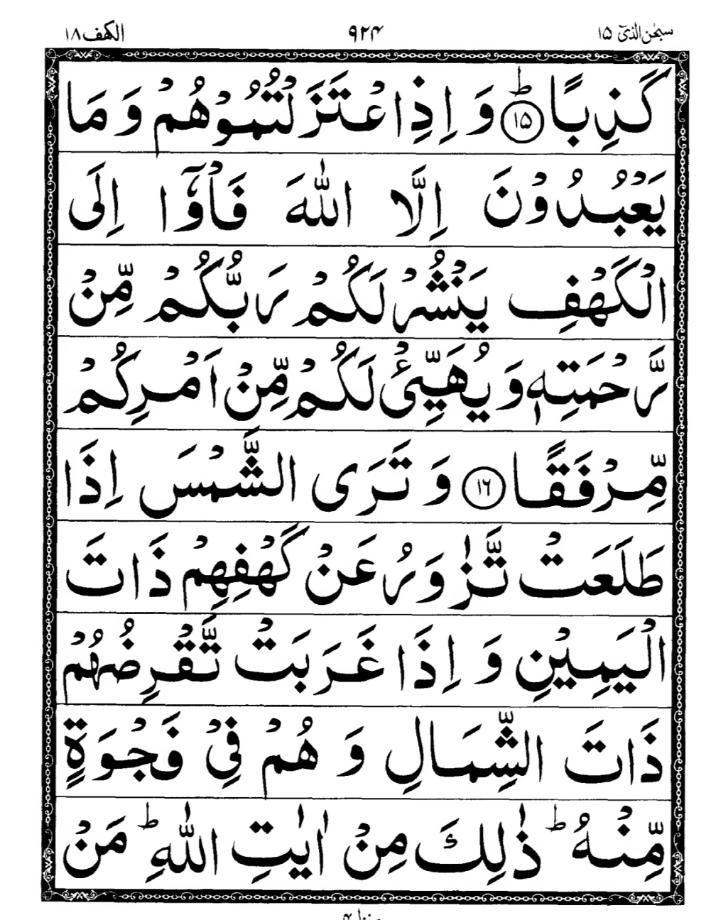 سبحٰن الذیٓ ۱۵ ۹۲۴ الکہف ۱۸
كَذِبًا ؕ﴿۱۵﴾ وَ اِذِاعْتَزَلْتُمُوْهُمْ وَ مَا
يَعْبُدُوْنَ اِلَّا اللّٰهَ فَاْوٗۤا اِلَى
الْكَهْفِ يَنْشُرْ لَكُمْ رَبُّكُمْ مِّنْ
رَّحْمَتِهٖ وَ يُهَيِّئْ لَكُمْ مِّنْ اَمْرِكُمْ
مِّرْفَقًا ﴿۱۶﴾ وَ تَرَى الشَّمْسَ اِذَا
طَلَعَتْ تَّزٰوَرُ عَنْ كَهْفِهِمْ ذَاتَ
الْيَمِيْنِ وَ اِذَا غَرَبَتْ تَّقْرِضُهُمْ
ذَاتَ الشِّمَالِ وَ هُمْ فِيْ فَجْوَةٍ
مِّنْهُ ؕ ذٰلِكَ مِنْ اٰيٰتِ اللّٰهِ ؕ مَنْ